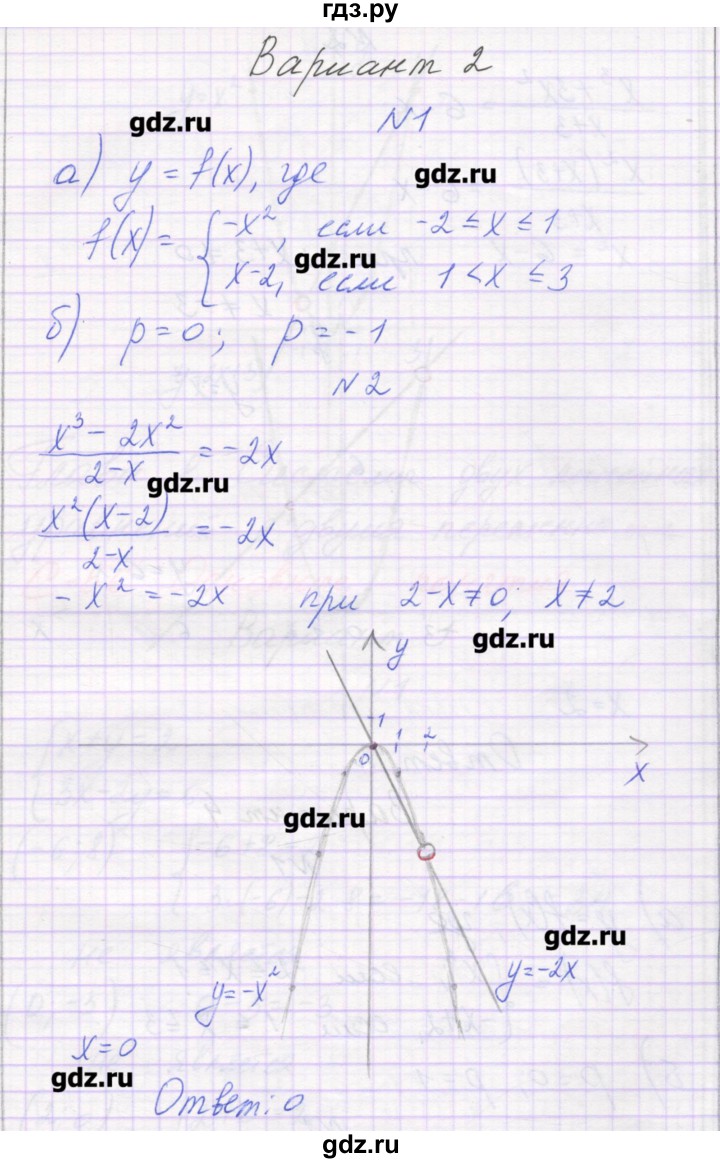 гдз.ру
Вариант 2
gdz.ru
№1
а) y = f(x), где
gdz.ru
f(x) = { -x², если -2 ≤ x ≤ 1
gdz.ru
x-2, если 1 < x ≤ 3
б) p = 0; p = -1
№2
(x³ - 2x²)/(2-x) = -2x
gdz.ru
(x²(x-2))/(2-x) = -2x
-x² = -2x при 2-x≠0; x≠2
gdz.ru
y
1
1 2
0
x
gdz.ru
gdz.ru
y=-x²
y=-2x
x=0
gdz.ru
Ответ: 0
gdz.ru